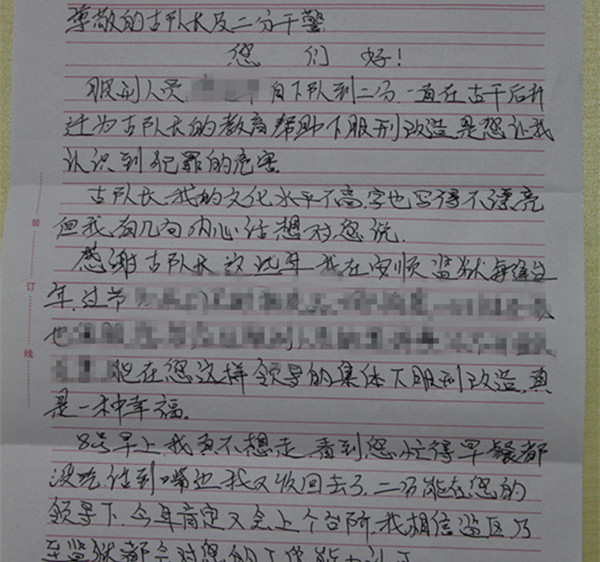 尊敬的古队长及二分干警
您们好!
服刑人员 自下队到二分.一直在古干后升
迁为古队长的教育帮助下服刑改造.是您让我
认识到犯罪的危害.
古队长.我的文化水平不高.字也写得不漂亮
但我有几句内心话想对您说.
感谢古队长.这些年.我在安顺监狱每逢过
年.过节
也
能在您这样领导的集体下服刑改造.真
是一种幸福.
8号早上.我真不想走.看到您忙得早餐都
没吃.话到嘴边.我又收回去了.二分能在您的
领导下.今年肯定又会上个台阶.我相信监区乃
至监狱都会对您的工作能力认可
装
订
线